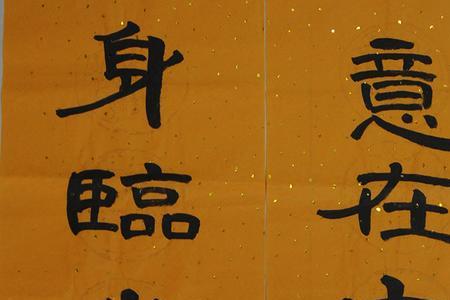 意在
身臨